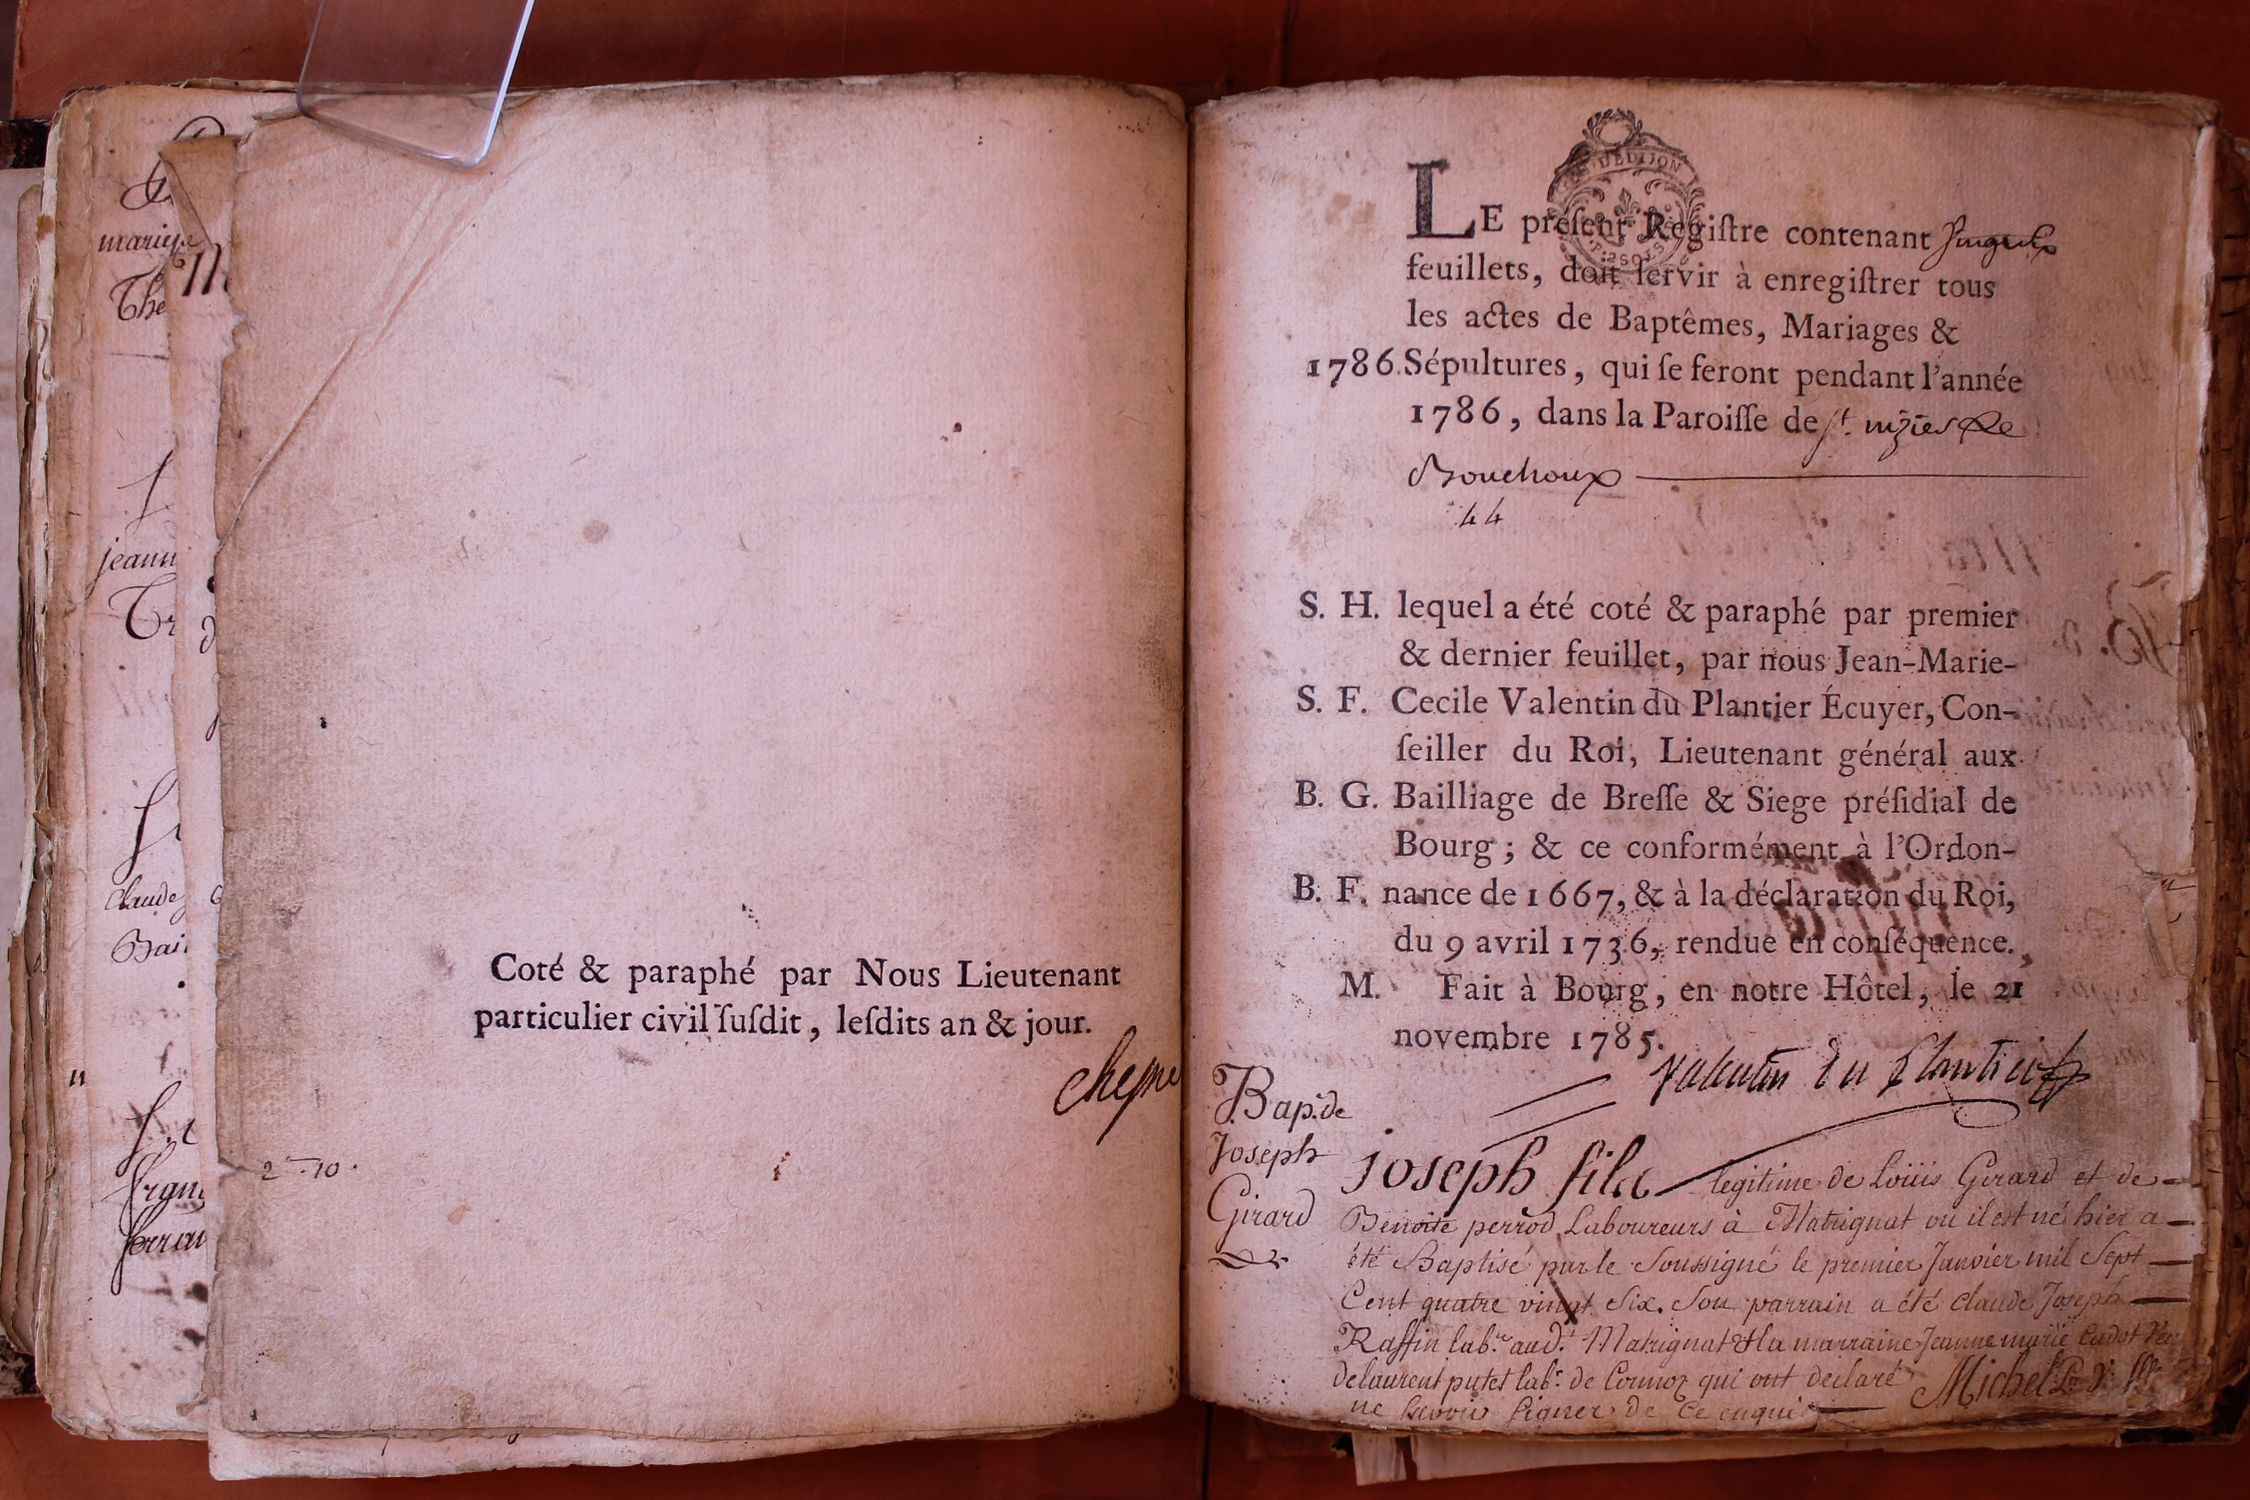 mariga
The
jeann
Tr
claude
Bai
11
fran
ferran
Coté & paraphé par Nous Lieutenant
particulier civil ſuſdit, leſdits an & jour.
2 - 10.
DE DIJON
LE préſent Regiſtre contenant
feuillets, doit ſervir à enregiſtrer tous
les actes de Baptêmes, Mariages &
1786. Sépultures, qui ſe feront pendant l'année
1786, dans la Paroiſſe de st. nizier Le
Bouchoux
44
S. H. lequel a été coté & paraphé par premier
& dernier feuillet, par nous Jean-Marie-
S. F. Cecile Valentin du Plantier Écuyer, Con-
ſeiller du Roi, Lieutenant général aux
B. G. Bailliage de Breſſe & Siege préſidial de
Bourg ; & ce conformément à l'Ordon-
B. F. nance de 1667, & à la déclaration du Roi,
du 9 avril 1736, rendue en conſéquence.
M. Fait à Bourg, en notre Hôtel, le 21
novembre 1785.
Valentin du Plantier
Bap. de
Joseph
Girard
joseph fils legitime de Loüis Girard et de
Benoite perrod Laboureurs à Matrignat ou il est né hier a
été Baptisé par le Soussigné le premier Janvier mil Sept
Cent quatre vingt Six. Son parrain a été claude Joseph
Raffin lab.r aud.t Matrignat & la marraine Jeanne marie
de laurent putet lab.r de Cormoz qui ont declaré Michel
ne scavoir signer de ce enquis